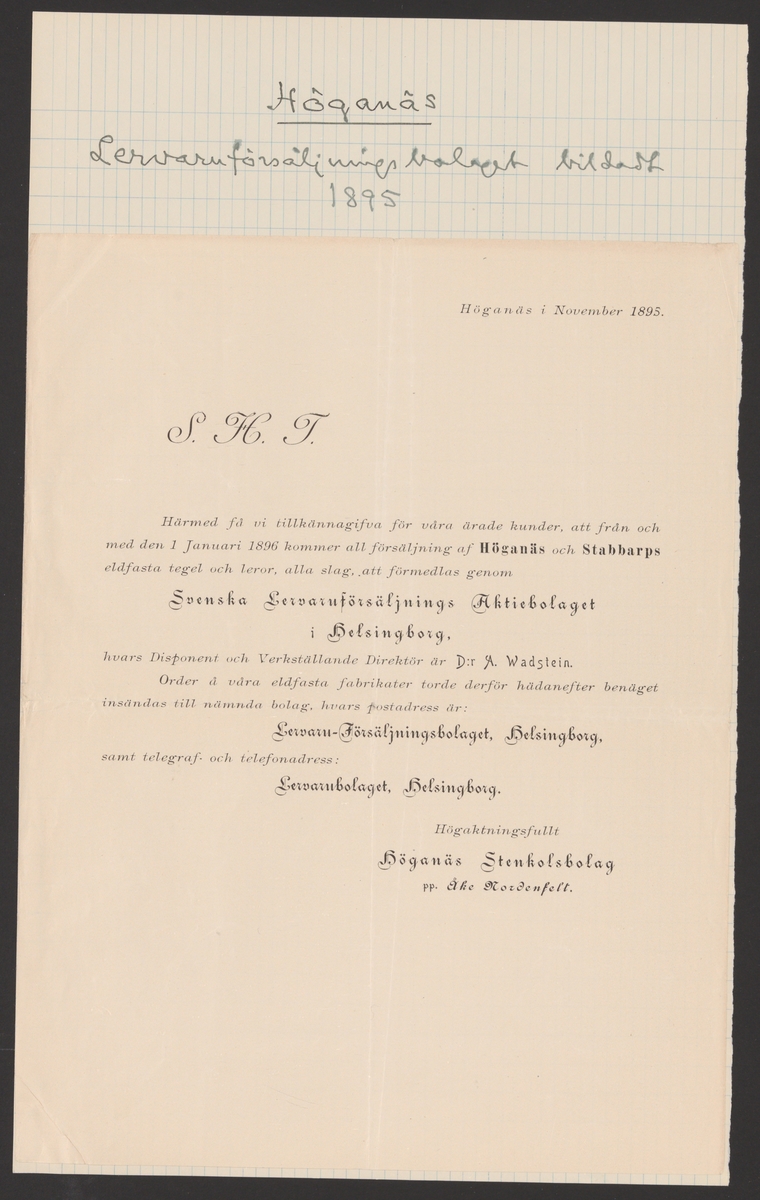 Höganäs
Lervaruförsäljningsbolaget bildadt
1895
Höganäs i November 1895.
S. H. T.
Härmed få vi tillkännagifva för våra ärade kunder, att från och
med den 1 Januari 1896 kommer all försäljning af Höganäs och Stabbarps
eldfasta tegel och leror, alla slag, att förmedlas genom
Svenska Lervaruförsäljnings Aktiebolaget
i Helsingborg,
hvars Disponent och Verkställande Direktör är D:r A. Wadstein.
Order å våra eldfasta fabrikater torde derför hädanefter benäget
insändas till nämnda bolag, hvars postadress är:
Lervaru-Försäljningsbolaget, Helsingborg,
samt telegraf- och telefonadress:
Lervarubolaget, Helsingborg.
Högaktningsfullt
Höganäs Stenkolsbolag
pp. Åke Nordenfelt.